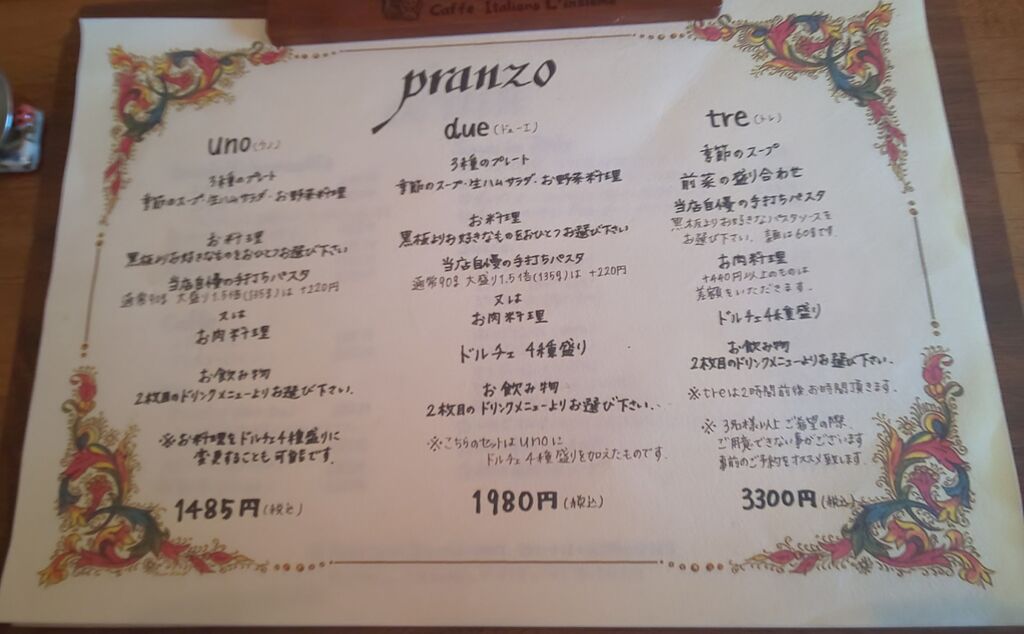 Caffe Italiano L'insieme
pranzo
uno (ウノ)
3種のプレート
季節のスープ・生ハムサラダ・お野菜料理
お料理
黒板よりお好きなものをおひとつお選び下さい
当店自慢の手打ちパスタ
通常90g 大盛り1.5倍(135g)は +220円
又は
お肉料理
お飲み物
2枚目のドリンクメニューよりお選び下さい.
※お料理をドルチェ4種盛りに
変更することも可能です.
1485円(税込)
due (ドゥーエ)
3種のプレート
季節のスープ・生ハムサラダ・お野菜料理
お料理
黒板よりお好きなものをおひとつお選び下さい
当店自慢の手打ちパスタ
通常90g 大盛り1.5倍(135g)は +220円
又は
お肉料理
ドルチェ 4種盛り
お飲み物
2枚目のドリンクメニューよりお選び下さい.
※こちらのセットはunoに
ドルチェ4種盛りを加えたものです.
1980円(税込)
tre (トレ)
季節のスープ
前菜の盛り合わせ
当店自慢の手打ちパスタ
黒板よりお好きなパスタソースを
お選び下さい. 量は60gです.
お肉料理
+440円以上のものは
差額をいただきます.
ドルチェ4種盛り
お飲み物
2枚目のドリンクメニューよりお選び下さい.
※treは2時間前後お時間頂きます.
※ 3名様以上ご希望の際、
ご用意できない事がございます
事前のご予約をオススメ致します.
3300円(税込)